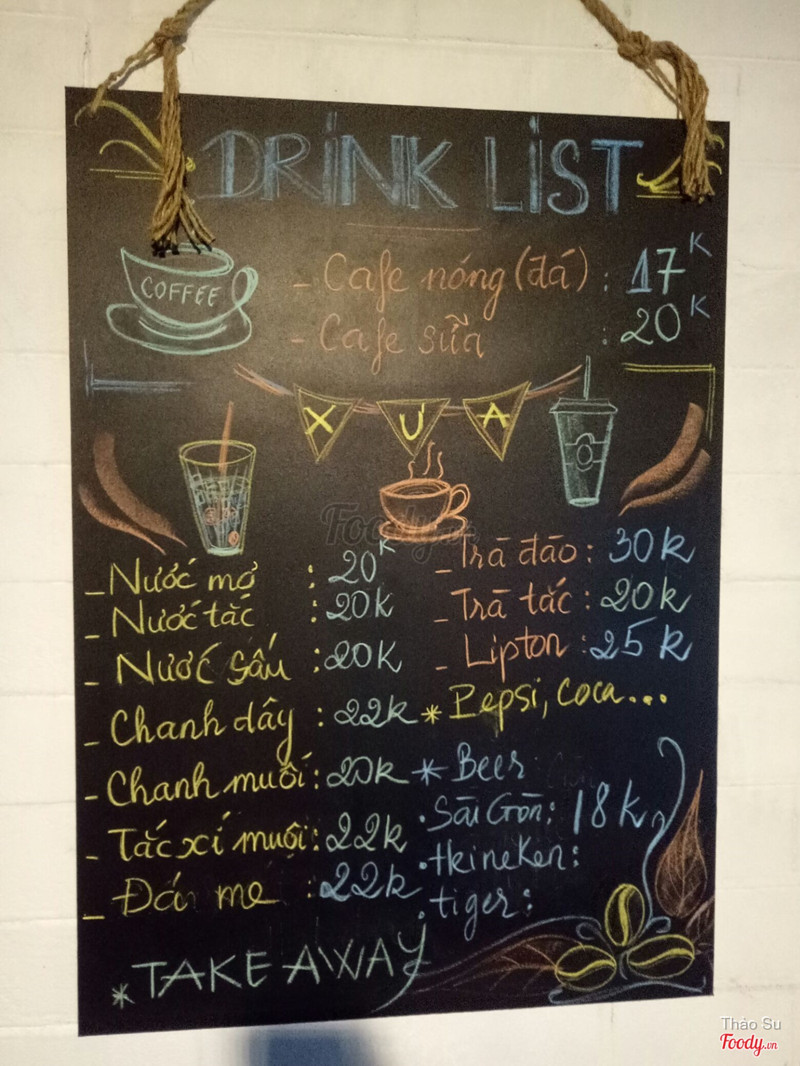 DRINK LIST
COFFEE
- Cafe nóng (đá) : 17K
- Cafe sữa : 20K
XƯA
Foody.vn
- Nước mơ : 20K
- Nước tắc : 20K
- Nước sấu : 20K
- Chanh dây : 22k
- Chanh muối : 20k
- Tắc xí muội : 22k
- Đá me : 22k
- Trà đào : 30k
- Trà tắc : 20k
- Lipton : 25k
* Pepsi, coca...
* Beer
. Sài Gòn : 18k
. Heineken :
. tiger :
* TAKE AWAY
Thảo Su
Foody.vn